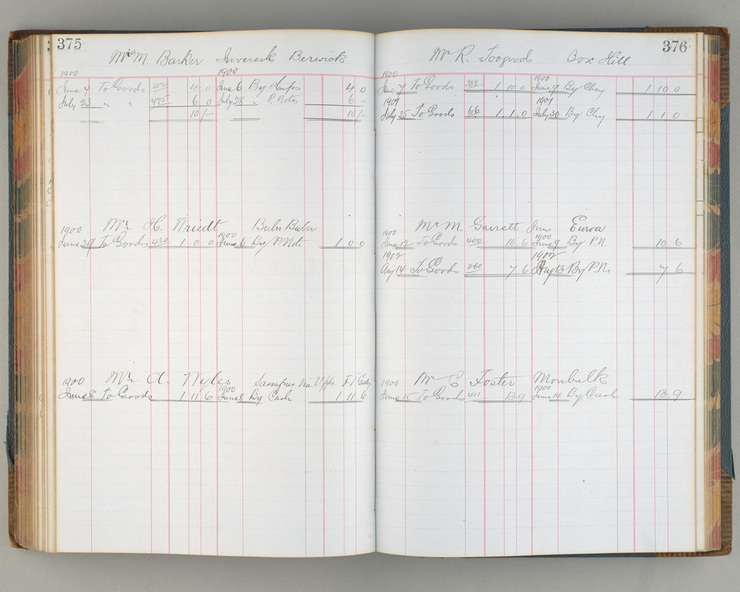 375
Mrs M. Barker Inveresk Berwick
1900 1900
June 4 To Goods 4 0 June 6 By Stamps 4 0
July 23 " " 475 6 0 July 28 " P. Notes 6 -
10/- 10/-
Mr H. Wriedt Buln Buln
1900 1900
June 29 To Goods 420 1 0 0 June 6 By P. Note 1 0 0
Mr A. Wyles Sassafras
1900 1900
June 8 To Goods 1 11 6 June 8 By Cash 1 11 6
376
Mr R. Toogood Box Hill
1900 1900
June 7 To Goods 1 10 0 June 9 By Chq 1 10 0
1901 1901
July 25 To Goods 66 1 1 0 July 30 By Chq 1 1 0
Mr M. Garrett Jnr Euroa
1900 1900
June 12 To Goods 400 10 6 June 9 By P.N. 10 6
1912 1912
Aug 14 To Goods 260 7 6 Aug 13 By P.N. 7 6
Mr C Foster Monbulk
1900 1900
June 15 To Goods 411 13 9 June 14 By Cash 13 9